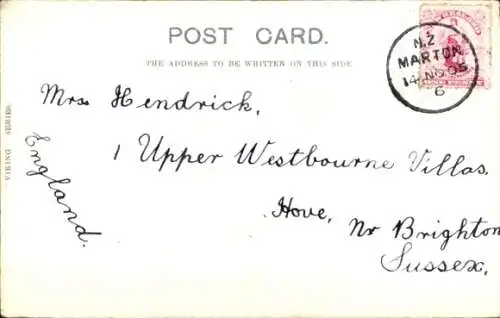 POST CARD.
THE ADDRESS TO BE WRITTEN ON THIS SIDE
N.Z
MARTON
14 NO 05
6
VIKING SERIES.
Mrs Hendrick,
1 Upper Westbourne Villas.
Hove,
Nr Brighton
Sussex.
England.